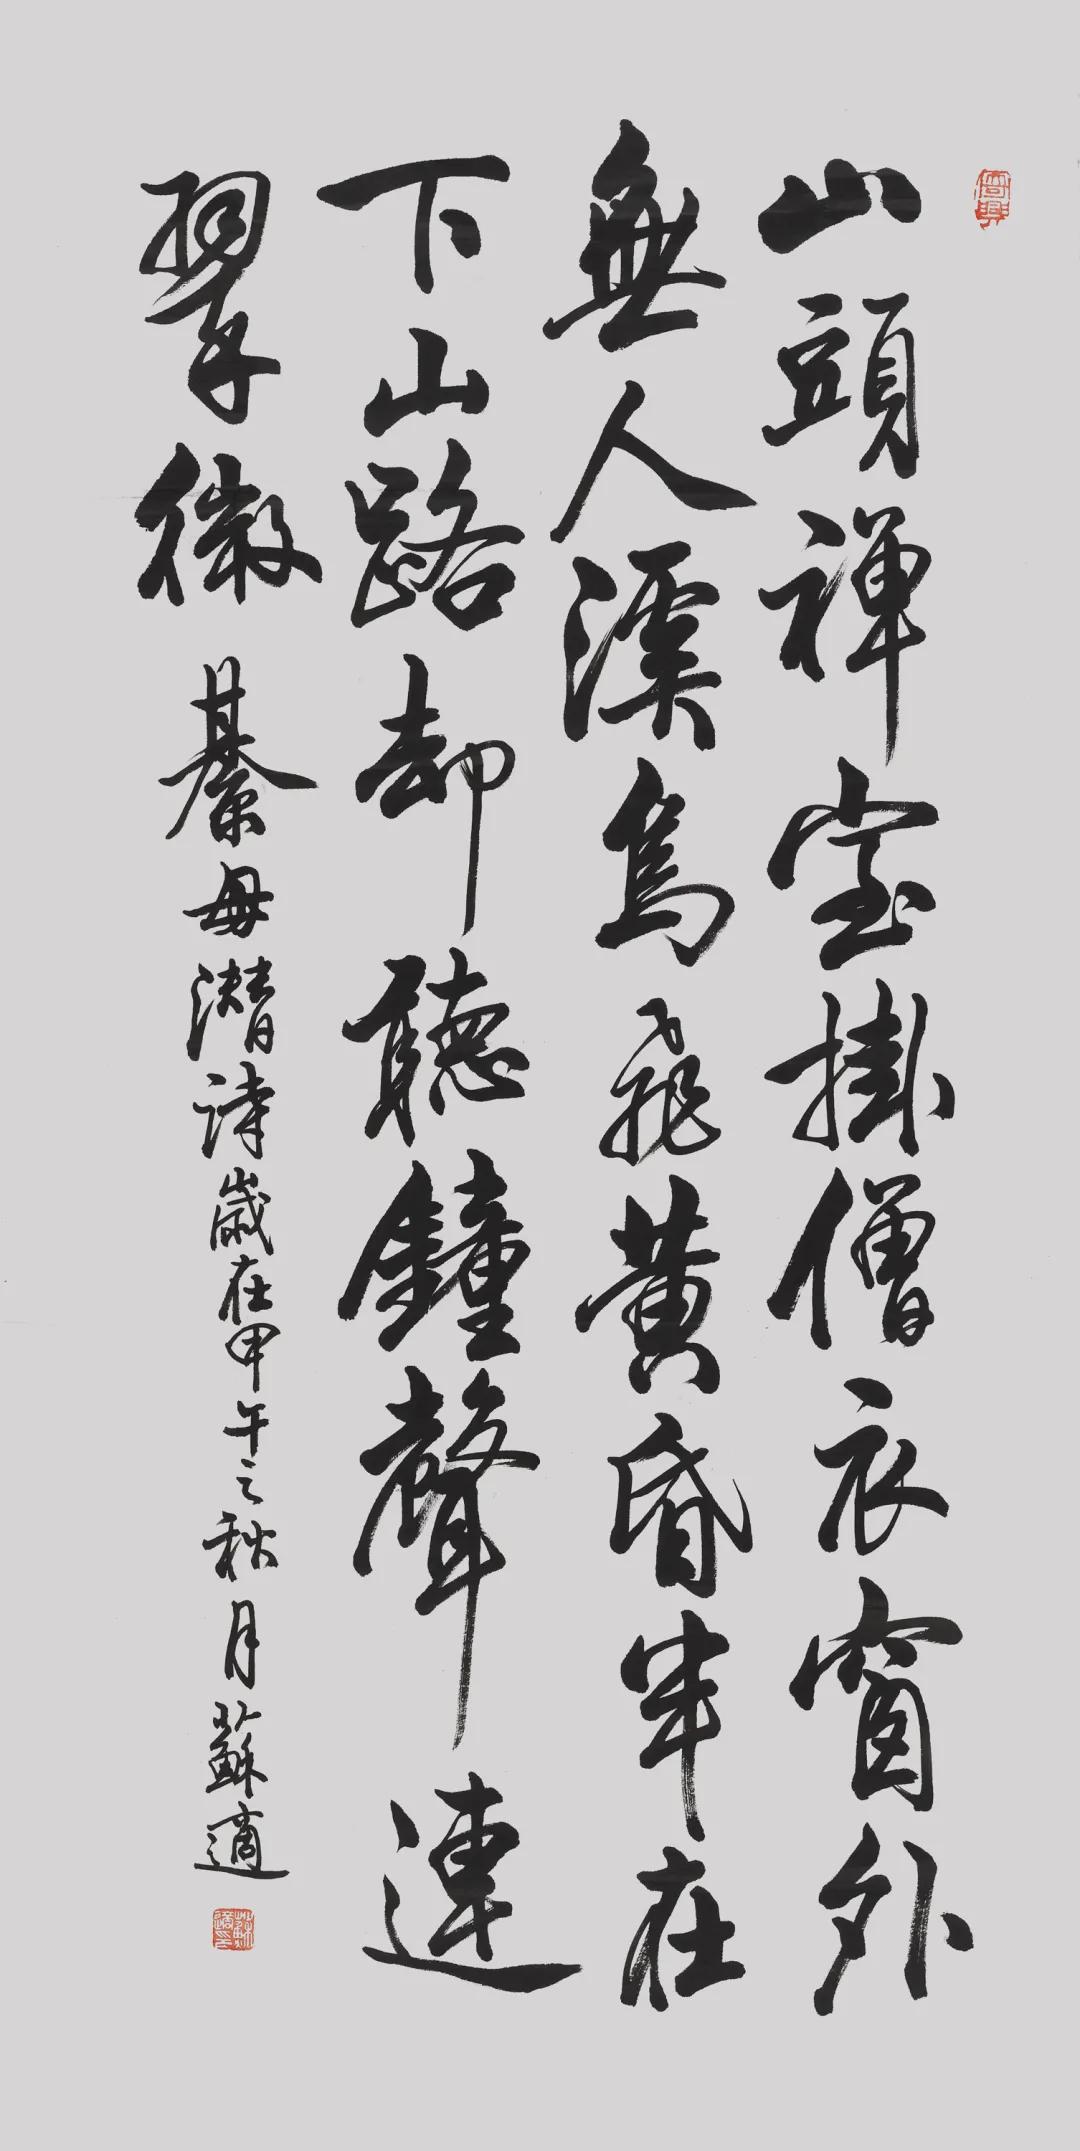 山頭禅室掛僧衣窗外
無人溪鳥飛黄昏半在
下山路却聽鐘聲連
翠微 綦毋潜詩歲在甲午之秋月蘇適
蘇適印